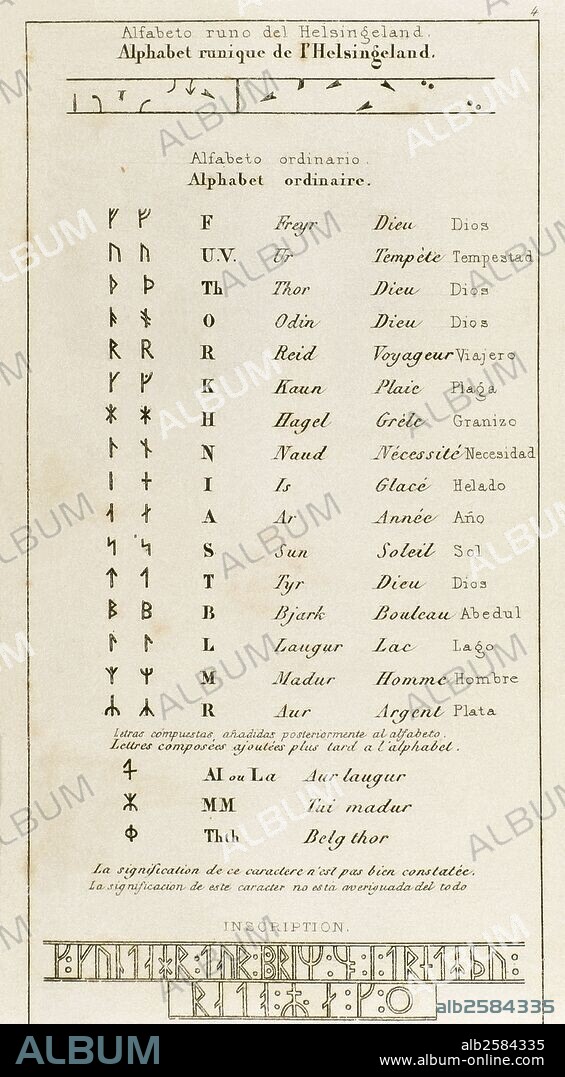 4
Alfabeto runo del Helsingeland.
Alphabet runique de l'Helsingeland.
Alfabeto ordinario.
Alphabet ordinaire.
ᚠ ᚠ F Freyr Dieu Dios
ᚢ ᚢ U.V. Ur Tempête Tempestad
ᚦ ᚦ Th Thor Dieu Dios
O Odin Dieu Dios
ᚱ ᚱ R Reid Voyageur Viajero
ᚴ ᚴ K Kaun Plaie Plaga
ᚼ ᚼ H Hagel Grêle Granizo
ᚿ ᚾ N Naud Nécessité Necesidad
ᛁ ᚽ I Is Glacé Helado
ᛆ ᛅ A Ar Année Año
ᛋ ᛋ S Sun Soleil Sol
ᛏ ᛐ T Tyr Dieu Dios
ᛒ ᛒ B Bjark Bouleau Abedul
ᛚ ᛚ L Laugur Lac Lago
ᛉ ᛘ M Madur Homme Hombre
ᛦ ᛦ R Aur Argent Plata
Letras compuestas, añadidas posteriormente al alfabeto.
Lettres composées ajoutées plus tard a l'alphabet.
AI ou La Aur laugur
MM Tui madur
Thth Belg thor
La signification de ce caractere n'est pas bien constatée.
La significacion de este caracter no esta averiguada del todo
INSCRIPTION.
ALBUM
alb2584335
ALBUM
alb2584335
www.album-online.com